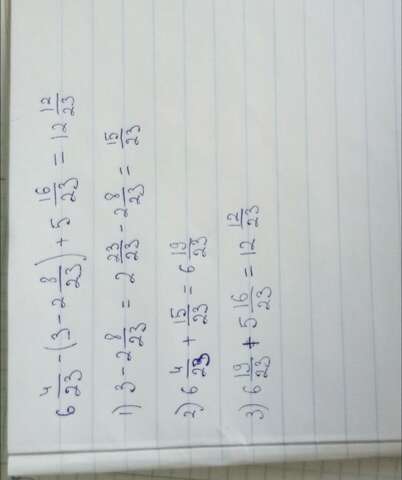 6 4/23 - (3 - 2 8/23) + 5 16/23 = 12 12/23
1) 3 - 2 8/23 = 2 23/23 - 2 8/23 = 15/23
2) 6 4/23 + 15/23 = 6 19/23
3) 6 19/23 + 5 16/23 = 12 12/23